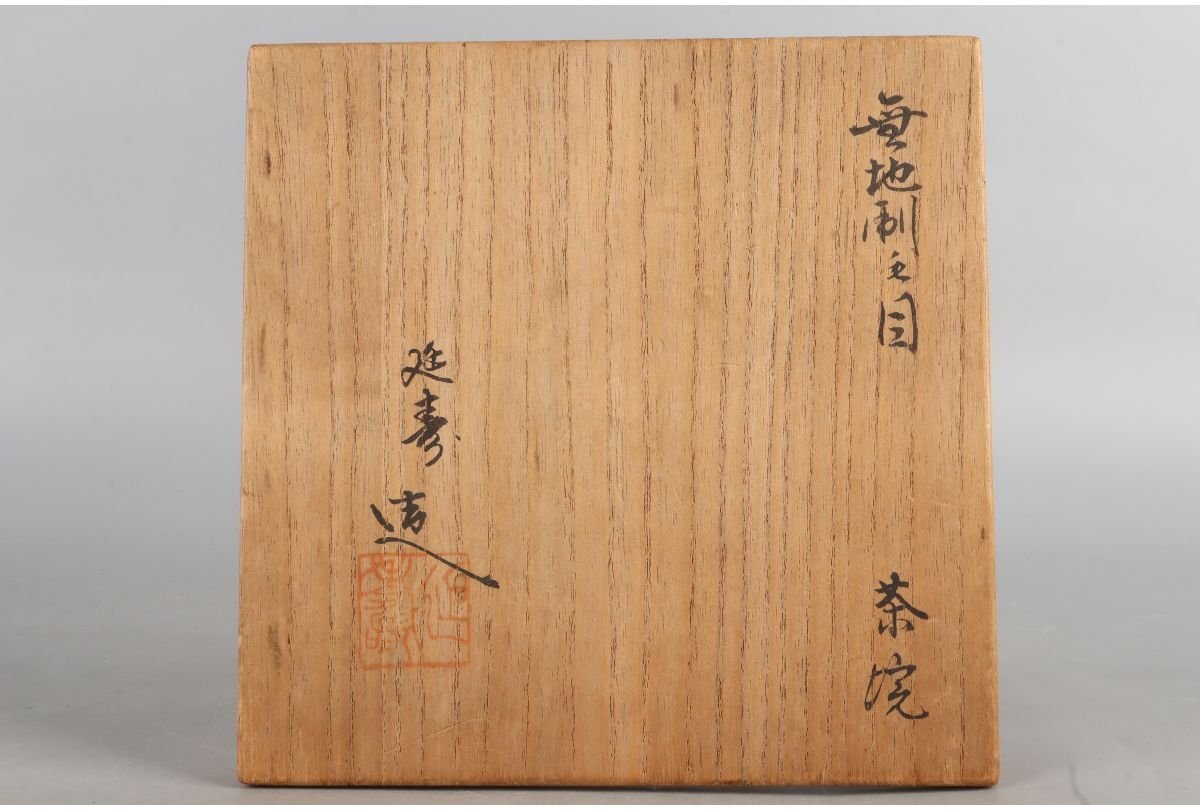 無地刷毛目
茶埦
延壽造